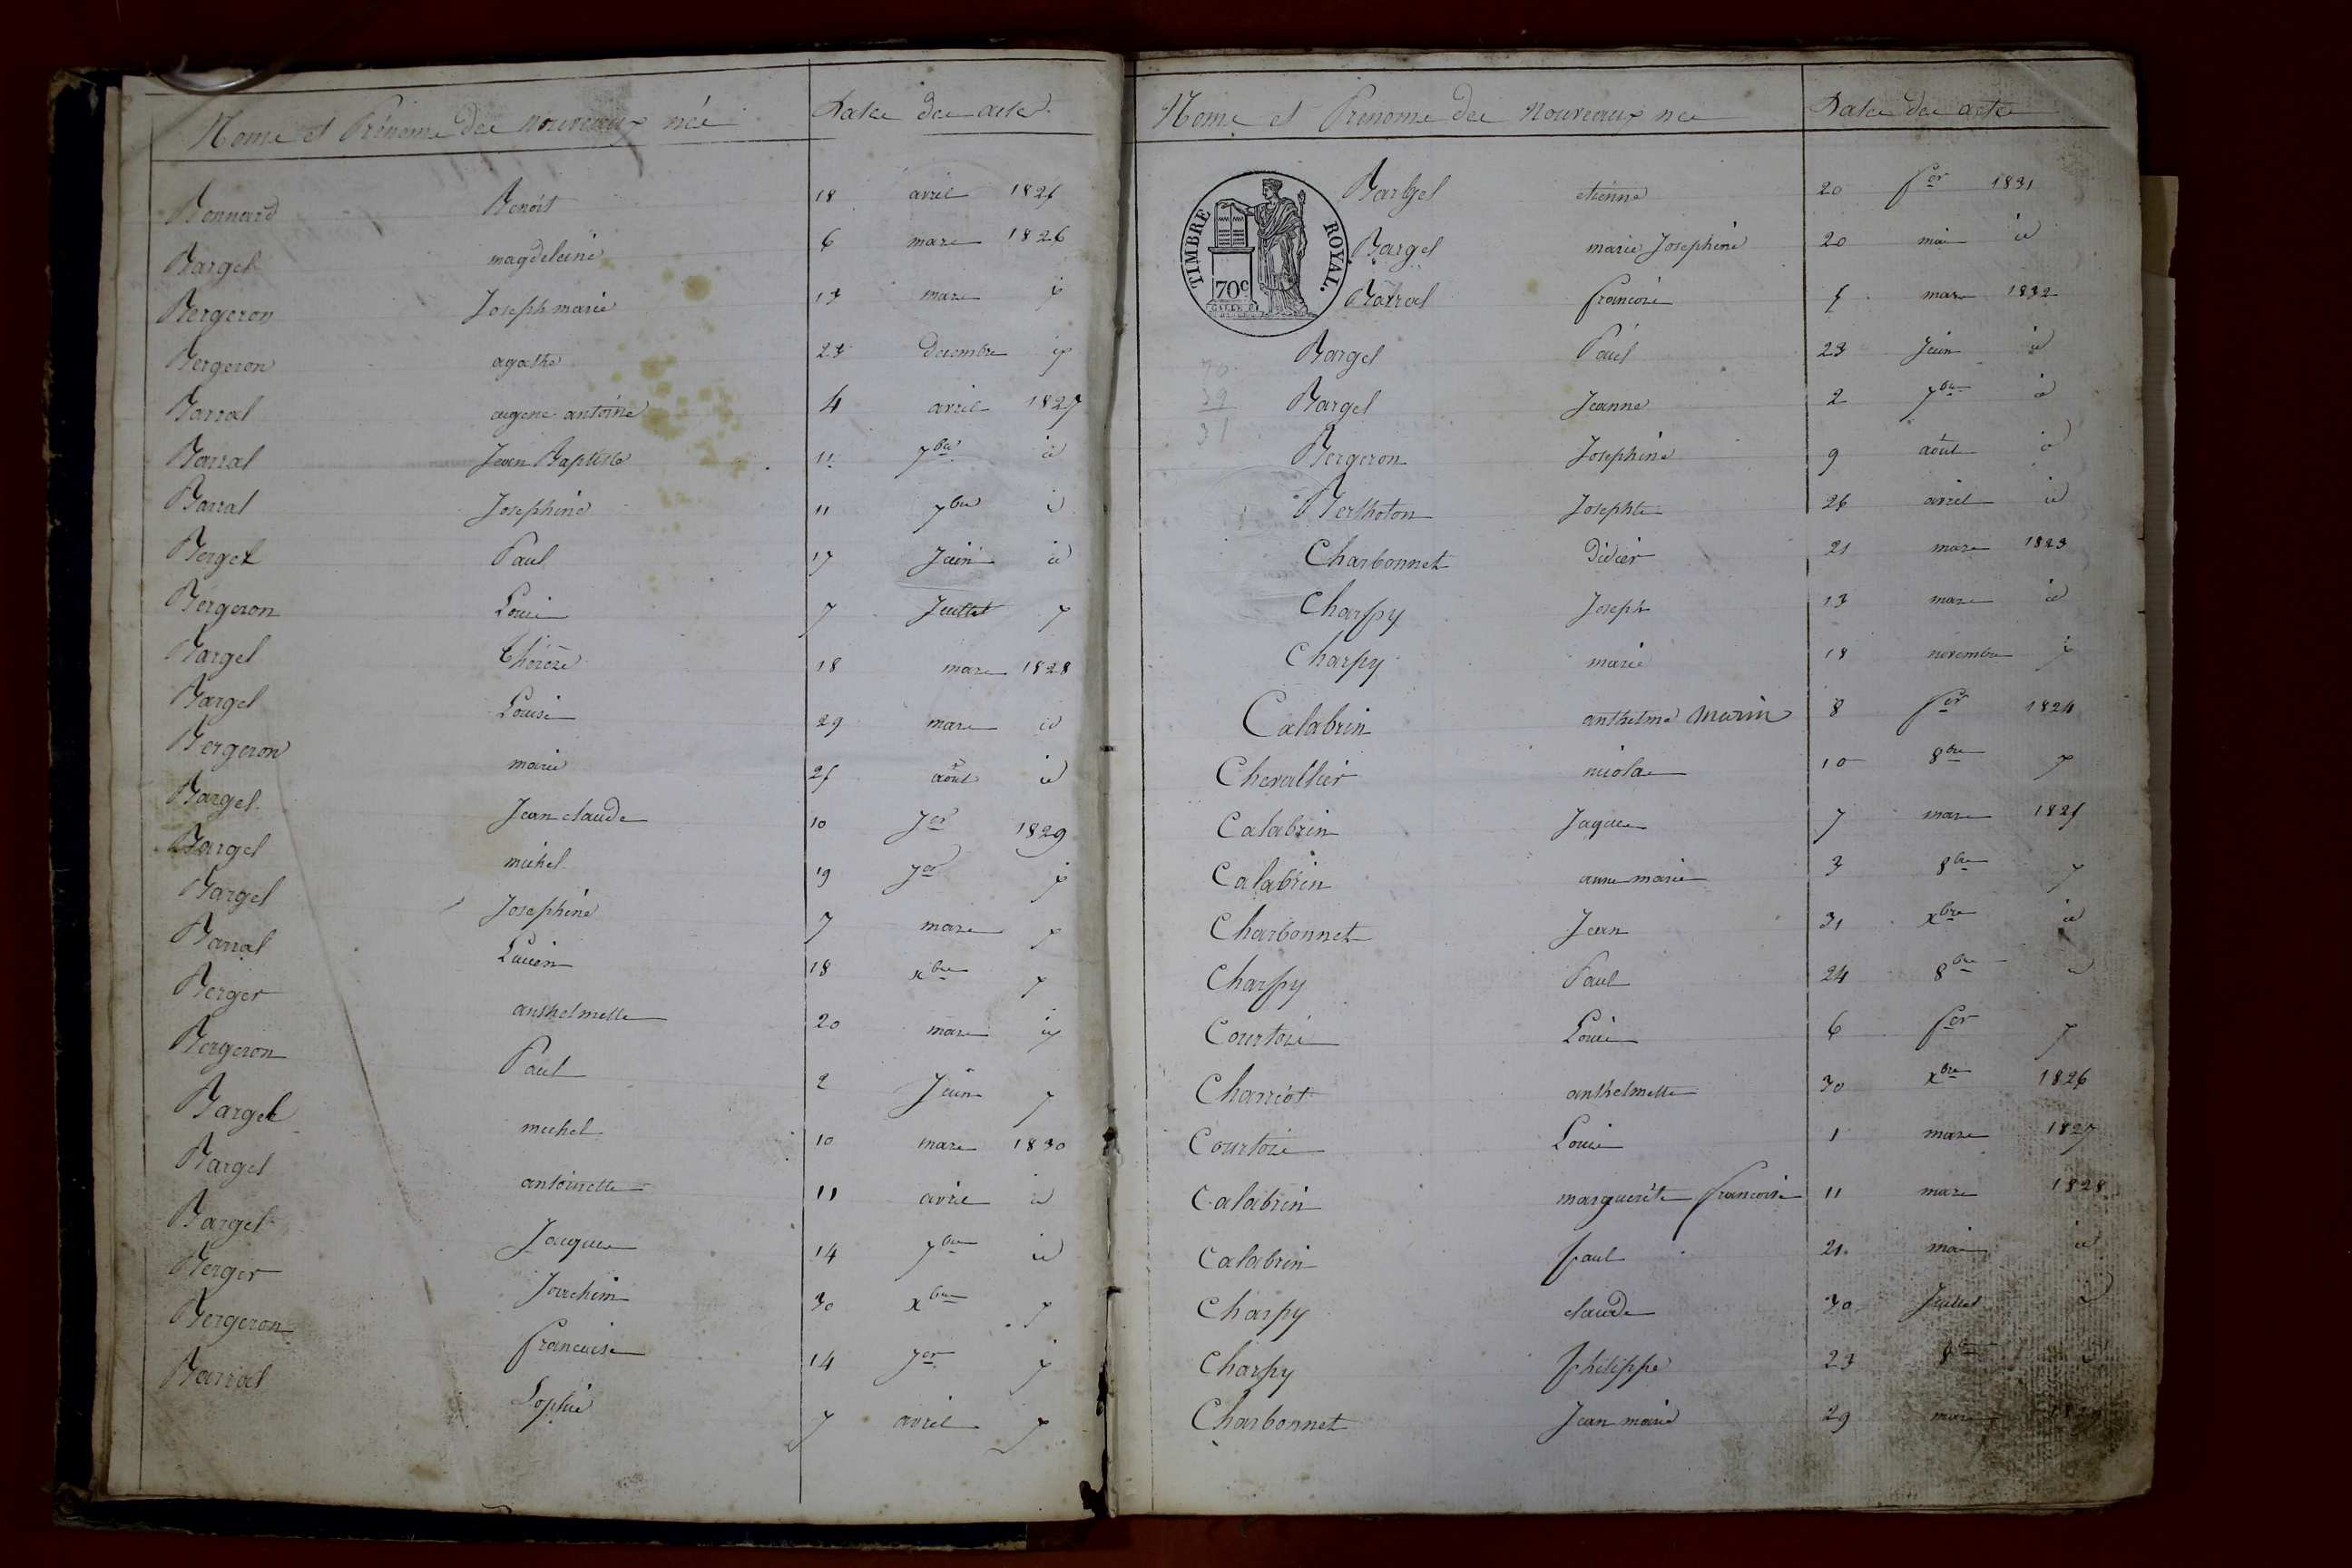 Noms et Prénoms des nouveaux nés Dates des actes
Bonnard Benoit 18 avril 1825
Bargel magdeleine 6 mars 1826
Bergeron Joseph marie 13 mars id
Bergeron agathe 23 decembre id
Barral eugene antoine 4 avril 1827
Barral Jean Baptiste 11 7bre id
Barral Josephine 11 7bre id
Berget Paul 17 Juin id
Bergeron Louis 7 Juillet id
Bargel Thérèse 18 mars 1828
Bargel Louise 29 mars id
Bergeron marie 25 août id
Bargel Jean claude 10 Jer 1829
Bargel michel 19 Jer id
Bargel Josephine 7 mars id
Barral Lucien 18 xbre id
Berger anthelmette 20 mars id
Bergeron Paul 2 Juin id
Bargel michel 10 mars 1830
Bargel antoinette 11 avril id
Bargel Jacques 14 7bre id
Berger Joachim 30 xbre id
Bergeron francoise 14 Jer id
Barral Sophie 7 avril id
Noms et Prenoms des nouveaux nes Dates des actes
TIMBRE ROYAL.
70c
Bargel etienne 20 fer 1831
Bargel marie Josephine 20 mai id
Barral francois 5 mars 1832
Bargel Paul 23 Juin id
Bargel Jeanne 2 7bre id
39
31
Bergeron Josephine 9 août id
Bertholon Josephte 26 avril id
Charbonnet Didier 21 mars 1823
Charpy Joseph 13 mars id
Charpy marie 18 novembre id
Calabrin anthelme Marin 8 fer 1824
Chevallier nicolas 10 8bre id
Calabrin Jaques 7 mars 1825
Calabrin anne marie 3 8bre id
Charbonnet Jean 31 xbre id
Charpy Paul 24 8bre id
Courtois Louis 6 fer id
Charriot anthelmette 30 xbre 1826
Courtois Louis 1 mars 1827
Calabrin marguerite francoise 11 mars 1828
Calabrin paul 21 mai id
Charpy claude 30 Juillet id
Charpy philippe 23 8bre id
Charbonnet Jean marie 29 mars